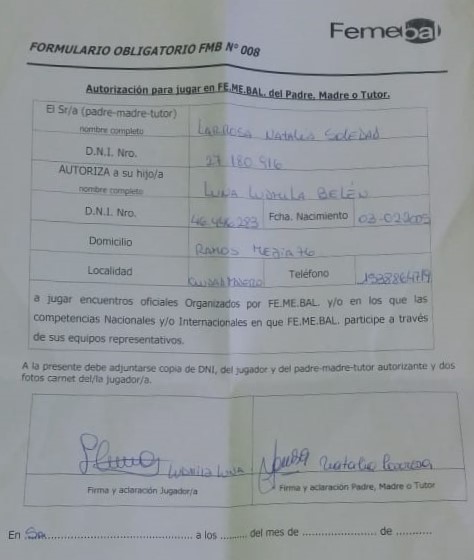 Femebal
FORMULARIO OBLIGATORIO FMB N° 008
Autorización para jugar en FE.ME.BAL. del Padre, Madre o Tutor.
El Sr/a (padre-madre-tutor)
nombre completo
LARROSA NATALIA SOLEDAD
D.N.I. Nro.
27.180.916
AUTORIZA a su hijo/a
nombre completo
LUNA LUDMILA BELÉN
D.N.I. Nro.
46.446.283 Fcha. Nacimiento 03-02-2005
Domicilio
RAMOS MEJIA 76
Localidad
Teléfono
a jugar encuentros oficiales Organizados por FE.ME.BAL. y/o en los que las
competencias Nacionales y/o Internacionales en que FE.ME.BAL. participe a través
de sus equipos representativos.
A la presente debe adjuntarse copia de DNI, del jugador y del padre-madre-tutor autorizante y dos
fotos carnet del/la jugador/a.
LUDMILA LUNA
Natalia Larrosa
Firma y aclaración Jugador/a
Firma y aclaración Padre, Madre o Tutor
En ........................................ a los ......... del mes de ...................... de ...........